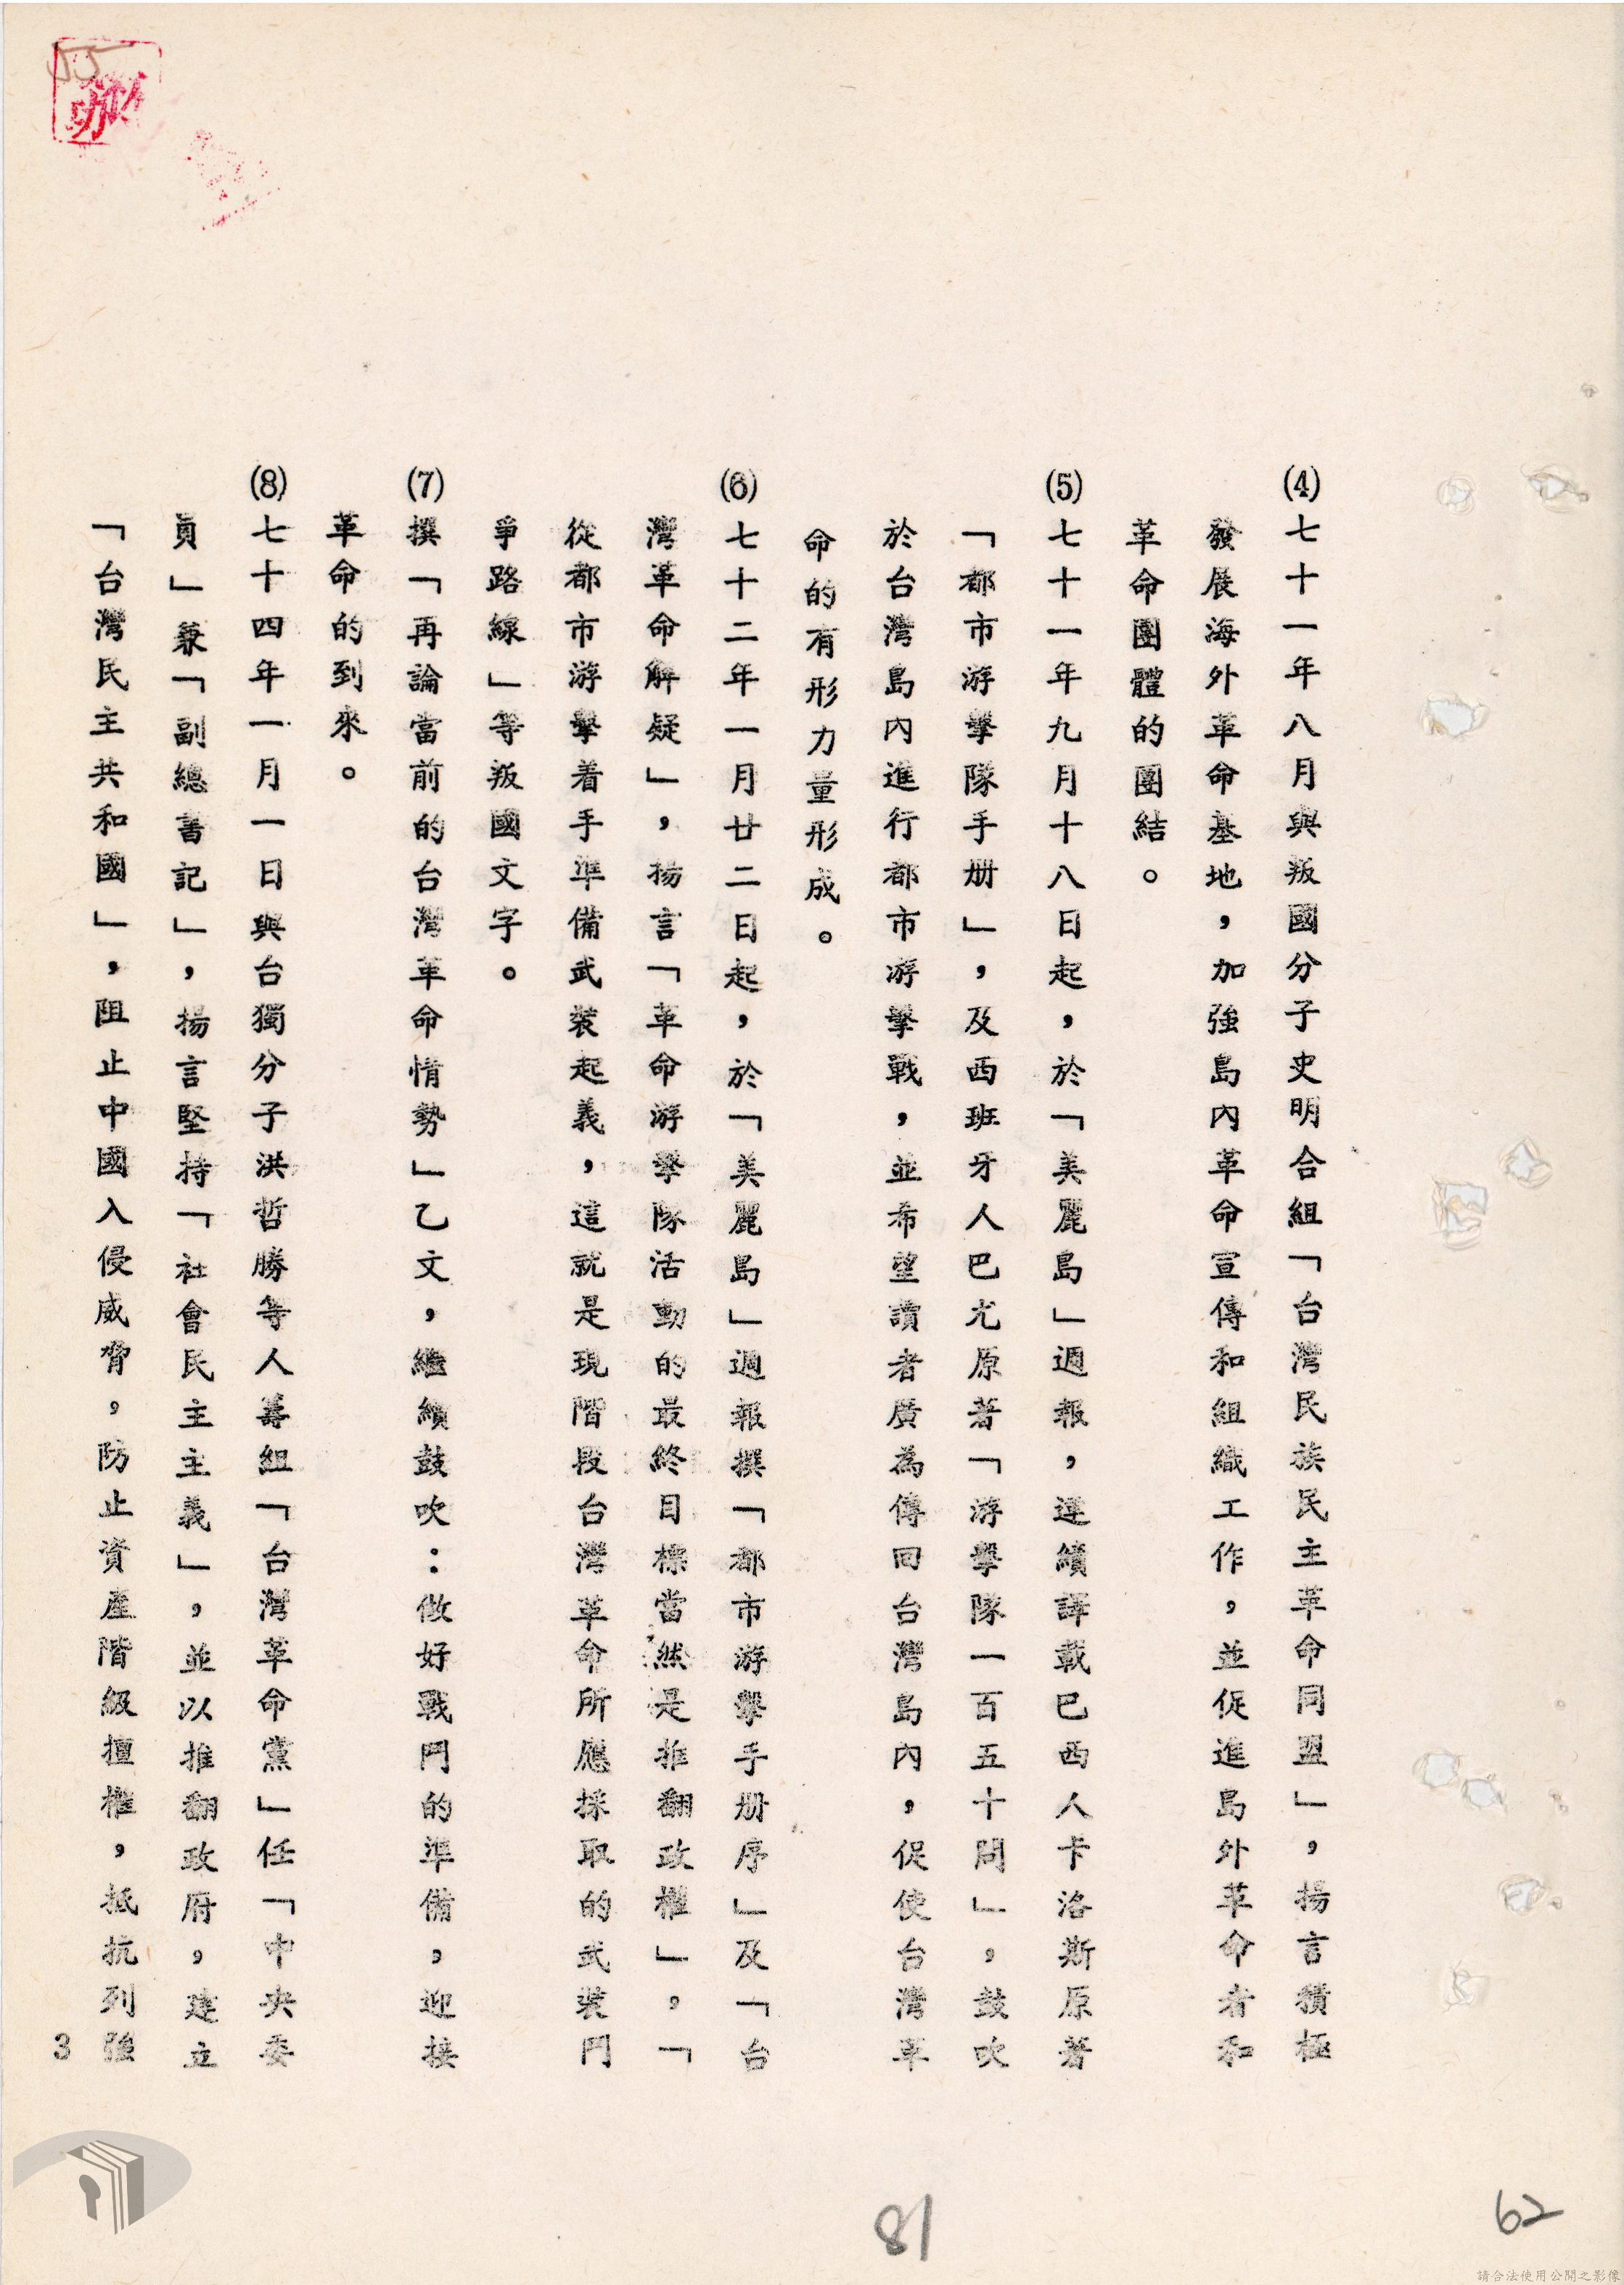 (4)七十一年八月與叛國分子史明合組「台灣民族民主革命同盟」，揚言積極
發展海外革命基地，加強島內革命宣傳和組織工作，並促進島外革命者和
革命團體的團結。
(5)七十一年九月十八日起，於「美麗島」週報，連續譯載巴西人卡洛斯原著
「都市游擊隊手册」，及西班牙人巴尤原著「游擊隊一百五十問」，鼓吹
於台灣島內進行都市游擊戰，並希望讀者廣為傳回台灣島內，促使台灣革
命的有形力量形成。
(6)七十二年一月廿二日起，於「美麗島」週報撰「都市游擊手册序」及「台
灣革命解疑」，揚言「革命游擊隊活動的最終目標當然是推翻政權」。「
從都市游擊着手準備武裝起義，這就是現階段台灣革命所應採取的武裝鬥
爭路線」等叛國文字。
(7)撰「再論當前的台灣革命情勢」乙文，繼續鼓吹：做好戰鬥的準備，迎接
革命的到來。
(8)七十四年一月一日與台獨分子洪哲勝等人籌組「台灣革命黨」任「中央委
員」兼「副總書記」，揚言堅持「社會民主主義」，並以推翻政府，建立
「台灣民主共和國」，阻止中國入侵威脅，防止資產階級擅權，抵抗列強
3
55
81
62
請合法使用公開之影像